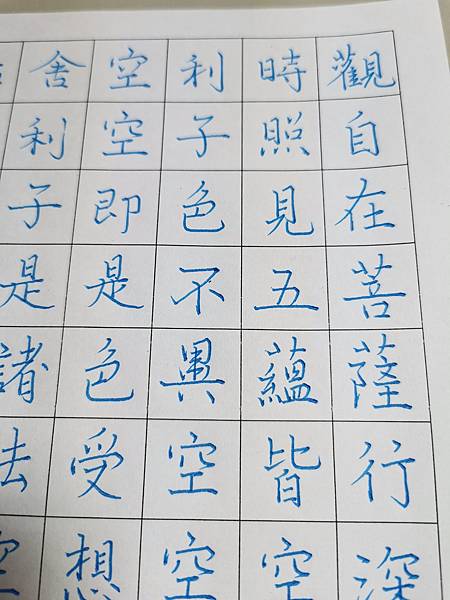 觀自在菩薩行深
時照見五蘊皆空
利子色不異空空
空空即是色受想
舍利子是諸法空